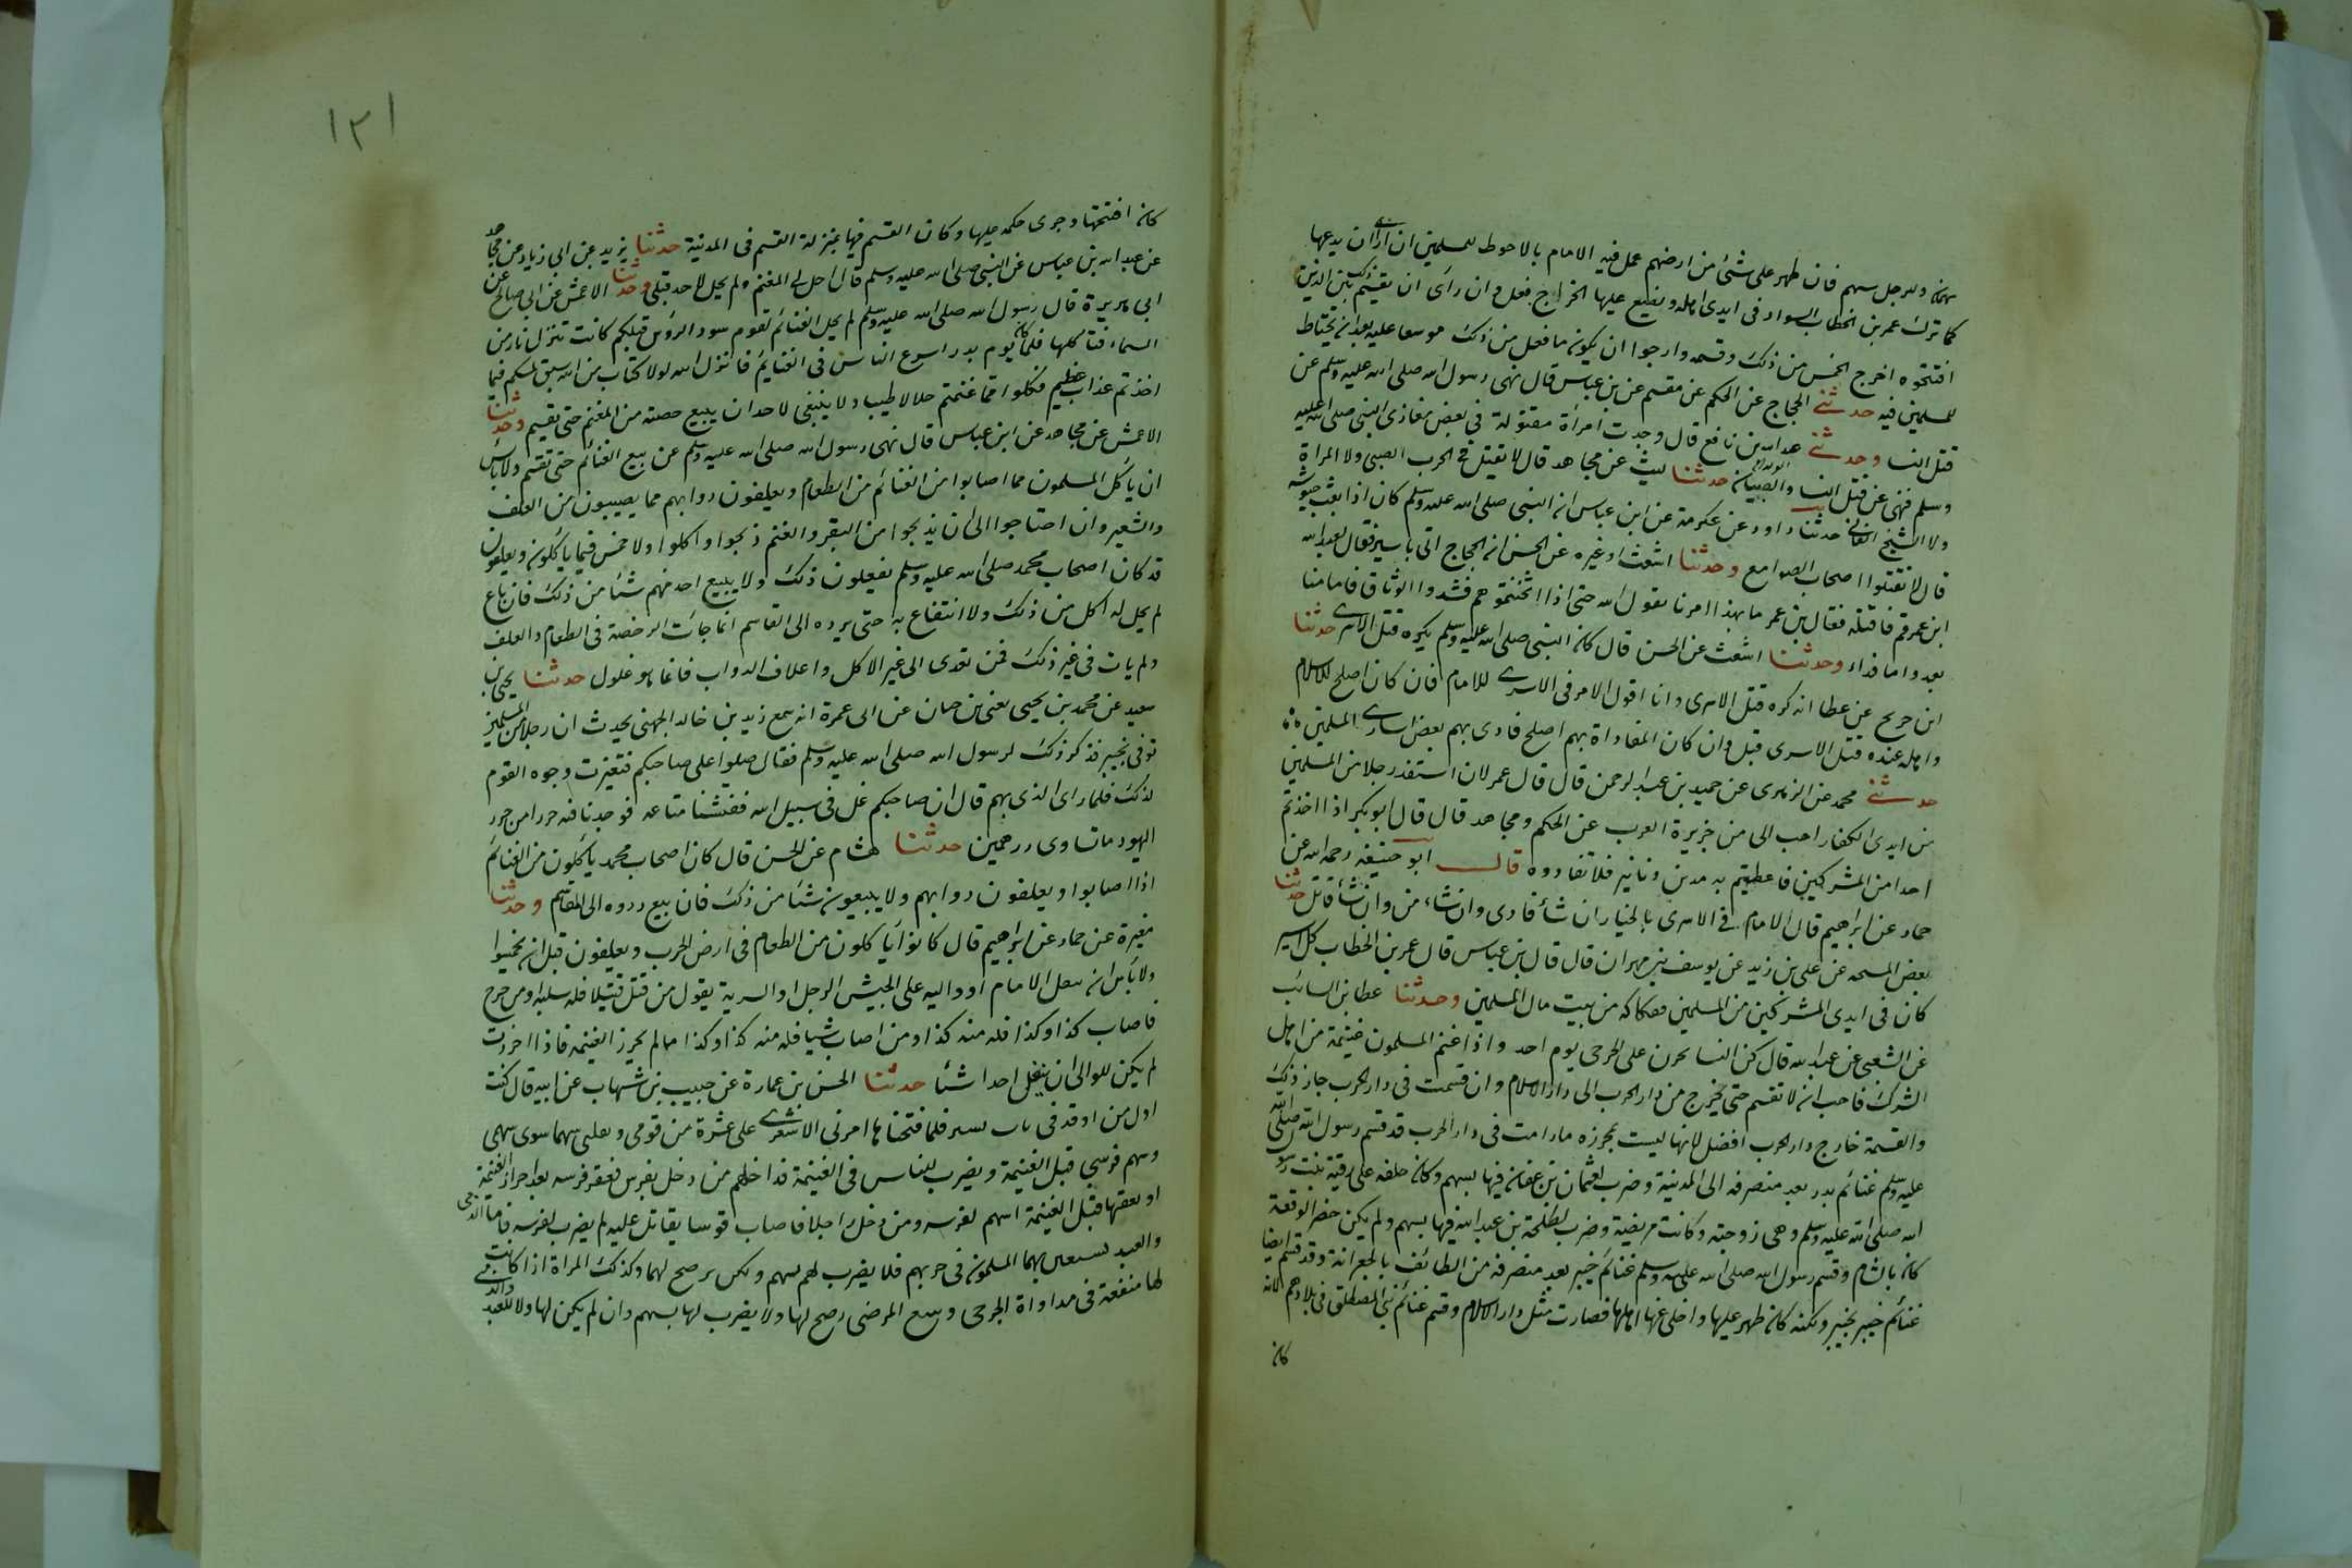 سهمان وللرجل سهم فان ظهر على شئ من ارضهم عمل فيه الامام بالاحوط للمسلمين ان رأى ان يدعها
كما ترك عمر بن الخطاب السواد فى ايدى اهله ويضع عليها الخراج فعل وان رأى ان يقسم بين الذين
افتتحوه اخرج الخمس من ذلك وقسمه وارجوا ان يكون ما فعل من ذلك موسعا عليه بعد ان يحتاط
للمسلمين فيه حدثنى الحجاج عن الحكم عن مقسم عن بن عباس قال نهى رسول الله صلى الله عليه وسلم عن
قتل النسا وحدثنى عبد الله بن نافع قال وجدت امرأة مقتولة فى بعض مغازى النبى صلى الله عليه
وسلم فنهى عن قتل النسا والصبيان حدثنا ليث عن مجاهد قال لا تقتل فى الحرب الصبى ولا المراة
ولا الشيخ الفانى حدثنا داود عن عكرمة عن ابن عباس ان النبى صلى الله عليه وسلم كان اذا بعث جيوشه
قال لا تقتلوا اصحاب الصوامع وحدثنا اشعث او غيره عن الحسن ان الحجاج اتى باسير فقال لعبد الله
ابن عمر قم فاقتله فقال بن عمر ما بهذا امرنا يقول الله حتى اذا اثخنتموهم فشدوا الوثاق فاما منا
بعد واما فداء وحدثنا اشعث عن الحسن قال كان النبى صلى الله عليه وسلم يكره قتل الاسرى حدثنا
ابن جريح عن عطا انه كره قتل الاسرى وانا اقول الامر فى الاسرى للامام فان كان اصلح للاسلام
واهله عنده قتل الاسرى قتل وان كان المفاداة بهم اصلح فادى بهم بعض اسارى المسلمين
حدثنى محمد عن الزهرى عن حميد بن عبد الرحمن قال قال عمر لان استنقذ رجلا من المسلمين
من ايدى الكفار احب الى من جزيرة العرب عن الحكم ومجاهد قال قال ابو بكر اذا اخذتم
احدا من المشركين فاعطيتم به مدين دنانير فلا تفادوه قال ابو حنيفه رحمه الله عن
حماد عن ابراهيم قال الامام فى الاسرى بالخيار ان شأ فادى وان شاء من وان شأ قتل حدثنا
بعض المشيخه عن على بن زيد عن يوسف بن مهران قال قال بن عباس قال عمر بن الخطاب كل اسير
كان فى ايدى المشركين من المسلمين ففكاكه من بيت مال المسلمين وحدثنا عطا بن السائب
عن الشعبى عن عبد الله قال كن النسا يحزن على الجرحى يوم احد واذا غنم المسلمون غنيمة من اهل
الشرك فاحب ان لا تقسم حتى تخرج من دار الحرب الى دار الاسلام وان قسمت فى دار الحرب جاز ذلك
والقسمة خارج دار الحرب افضل لانها ليست بمحرزه ما دامت فى دار الحرب قد قسم رسول الله صلى الله
عليه وسلم غنائم بدر بعد منصرفه الى المدينة وضرب لعثمان بن عفان فيها بسهم وكان خلفه على رقية بنت رسول
الله صلى الله عليه وسلم وهى زوجته وكانت مريضة وضرب لطلحة بن عبد الله فيها بسهم ولم يكن حضر الوقعة
كان بالشام وقسم رسول الله صلى الله عليه وسلم غنائم خيبر بعد منصرفه من الطائف بالجعرانة وقد قسم ايضا
غنائم خيبر بخيبر ولكنه كان ظهر عليها واخلى عنها اهلها فصارت مثل دار الاسلام وقسم غنائم بنى المصطلق فى بلادهم لانه
كان
١٢١
كان افتتحها وجرى حكمه عليها وكان القسم فيها بمنزلة القسم فى المدنية حدثنا يزيد عن ابى زياد عن مجاهد
عن عبد الله بن عباس عن النبى صلى الله عليه وسلم قال احل لى المغنم ولم يحل لاحد قبلى وحدثنا الاعمش عن ابى صالح عن
ابى هريرة قال رسول الله صلى الله عليه وسلم لم يحل الغنائم لقوم سود الرؤس قبلكم كانت تنزل نار من
السماء فتأكلها فلما كان يوم بدر اسرع الناس فى الغنايم فانزل الله لولا كتاب من الله سبق لمسكم فيما
اخذتم عذاب عظيم فكلوا مما غنمتم حلالا طيبا ولا ينبغى لاحد ان يبيع حصته من المغنم حتى يقسم وحدثنا
الاعمش عن مجاهد عن ابن عباس قال نهى رسول الله صلى الله عليه وسلم عن بيع الغنائم حتى تقسم ولا باس
ان يأكل المسلمون مما اصابوا من الغنائم من الطعام ويعلفون دوابهم مما يصيبون من العلف
والشعير وان احتاجوا الى ان يذبحوا من البقر والغنم ذبحوا واكلوا ولا خمس فيما ياكلون ويعلفون
قد كان اصحاب محمد صلى الله عليه وسلم يفعلون ذلك ولا يبيع احد منهم شئا من ذلك فان باع
لم يحل له اكل من ذلك ولا انتفاع به حتى يرده الى القاسم انما جأت الرخصة فى الطعام والعلف
ولم يات فى غير ذلك فمن تعدى الى غير الاكل واعلاف الدواب فانما هو غلول حدثنا يحيى بن
سعيد عن محمد بن يحيى يعنى بن حبان عن ابى عمرة انه سمع زيد بن خالد الجهنى يحدث ان رجلا من المسلمين
توفى بخيبر فذكر ذلك لرسول الله صلى الله عليه وسلم فقال صلوا على صاحبكم فتغيرت وجوه القوم
لذلك فلما راى الذى بهم قال ان صاحبكم غل فى سبيل الله ففتشنا متاعه فوجدنا فيه خرزا من خرز
اليهود ما تساوى درهمين حدثنا هشام عن الحسن قال كان اصحاب محمد يأكلون من الغنائم
اذا اصابوا ويعلفون دوابهم ولا يبيعون شئا من ذلك فان بيع ردوه الى المقاسم وحدثنا
مغيرة عن حماد عن ابراهيم قال كانوا يأكلون من الطعام فى ارض الحرب ويعلفون قبل ان يخمسوا
ولا بأس ان ينفل الامام او واليه على الجيش الرجل او السرية يقول من قتل قتيلا فله سلبه ومن خرج
فاصاب كذا وكذا فله منه كذا ومن اصاب شيا فله منه كذا وكذا ما لم يحرز الغنيمه فاذا احرزت
لم يكن للوالى ان ينفل احدا شئا حدثنا الحسن بن عمارة عن حبيب بن شهاب عن ابيه قال كنت
اول من اوقد فى باب تستر فلما فتحناها امرنى الاشعرى على عشرة من قومى ونفلنى سهما سوى سهمى
وسهم فرسى قبل الغنيمة ويضرب للناس فى الغنيمة قد اخلهم من دخل بفرس فعقر فرسه بعد احراز الغنيمة
او نفقها قبل الغنيمة اسهم لفرسه ومن دخل راجلا فاصاب فرسا يقاتل عليه لم يضرب لفرسه فاما الذمى
والعبد يستعين بهما المسلمون فى حربهم فلا يضرب لهم بسهم ولكن يرضخ لهما وكذلك المراة اذا كانت
لها منفعة فى مداواة الجرحى وسقى المرضى رضخ لها ولا يضرب لها بسهم وان لم يكن لها ولا للعبد والذمى